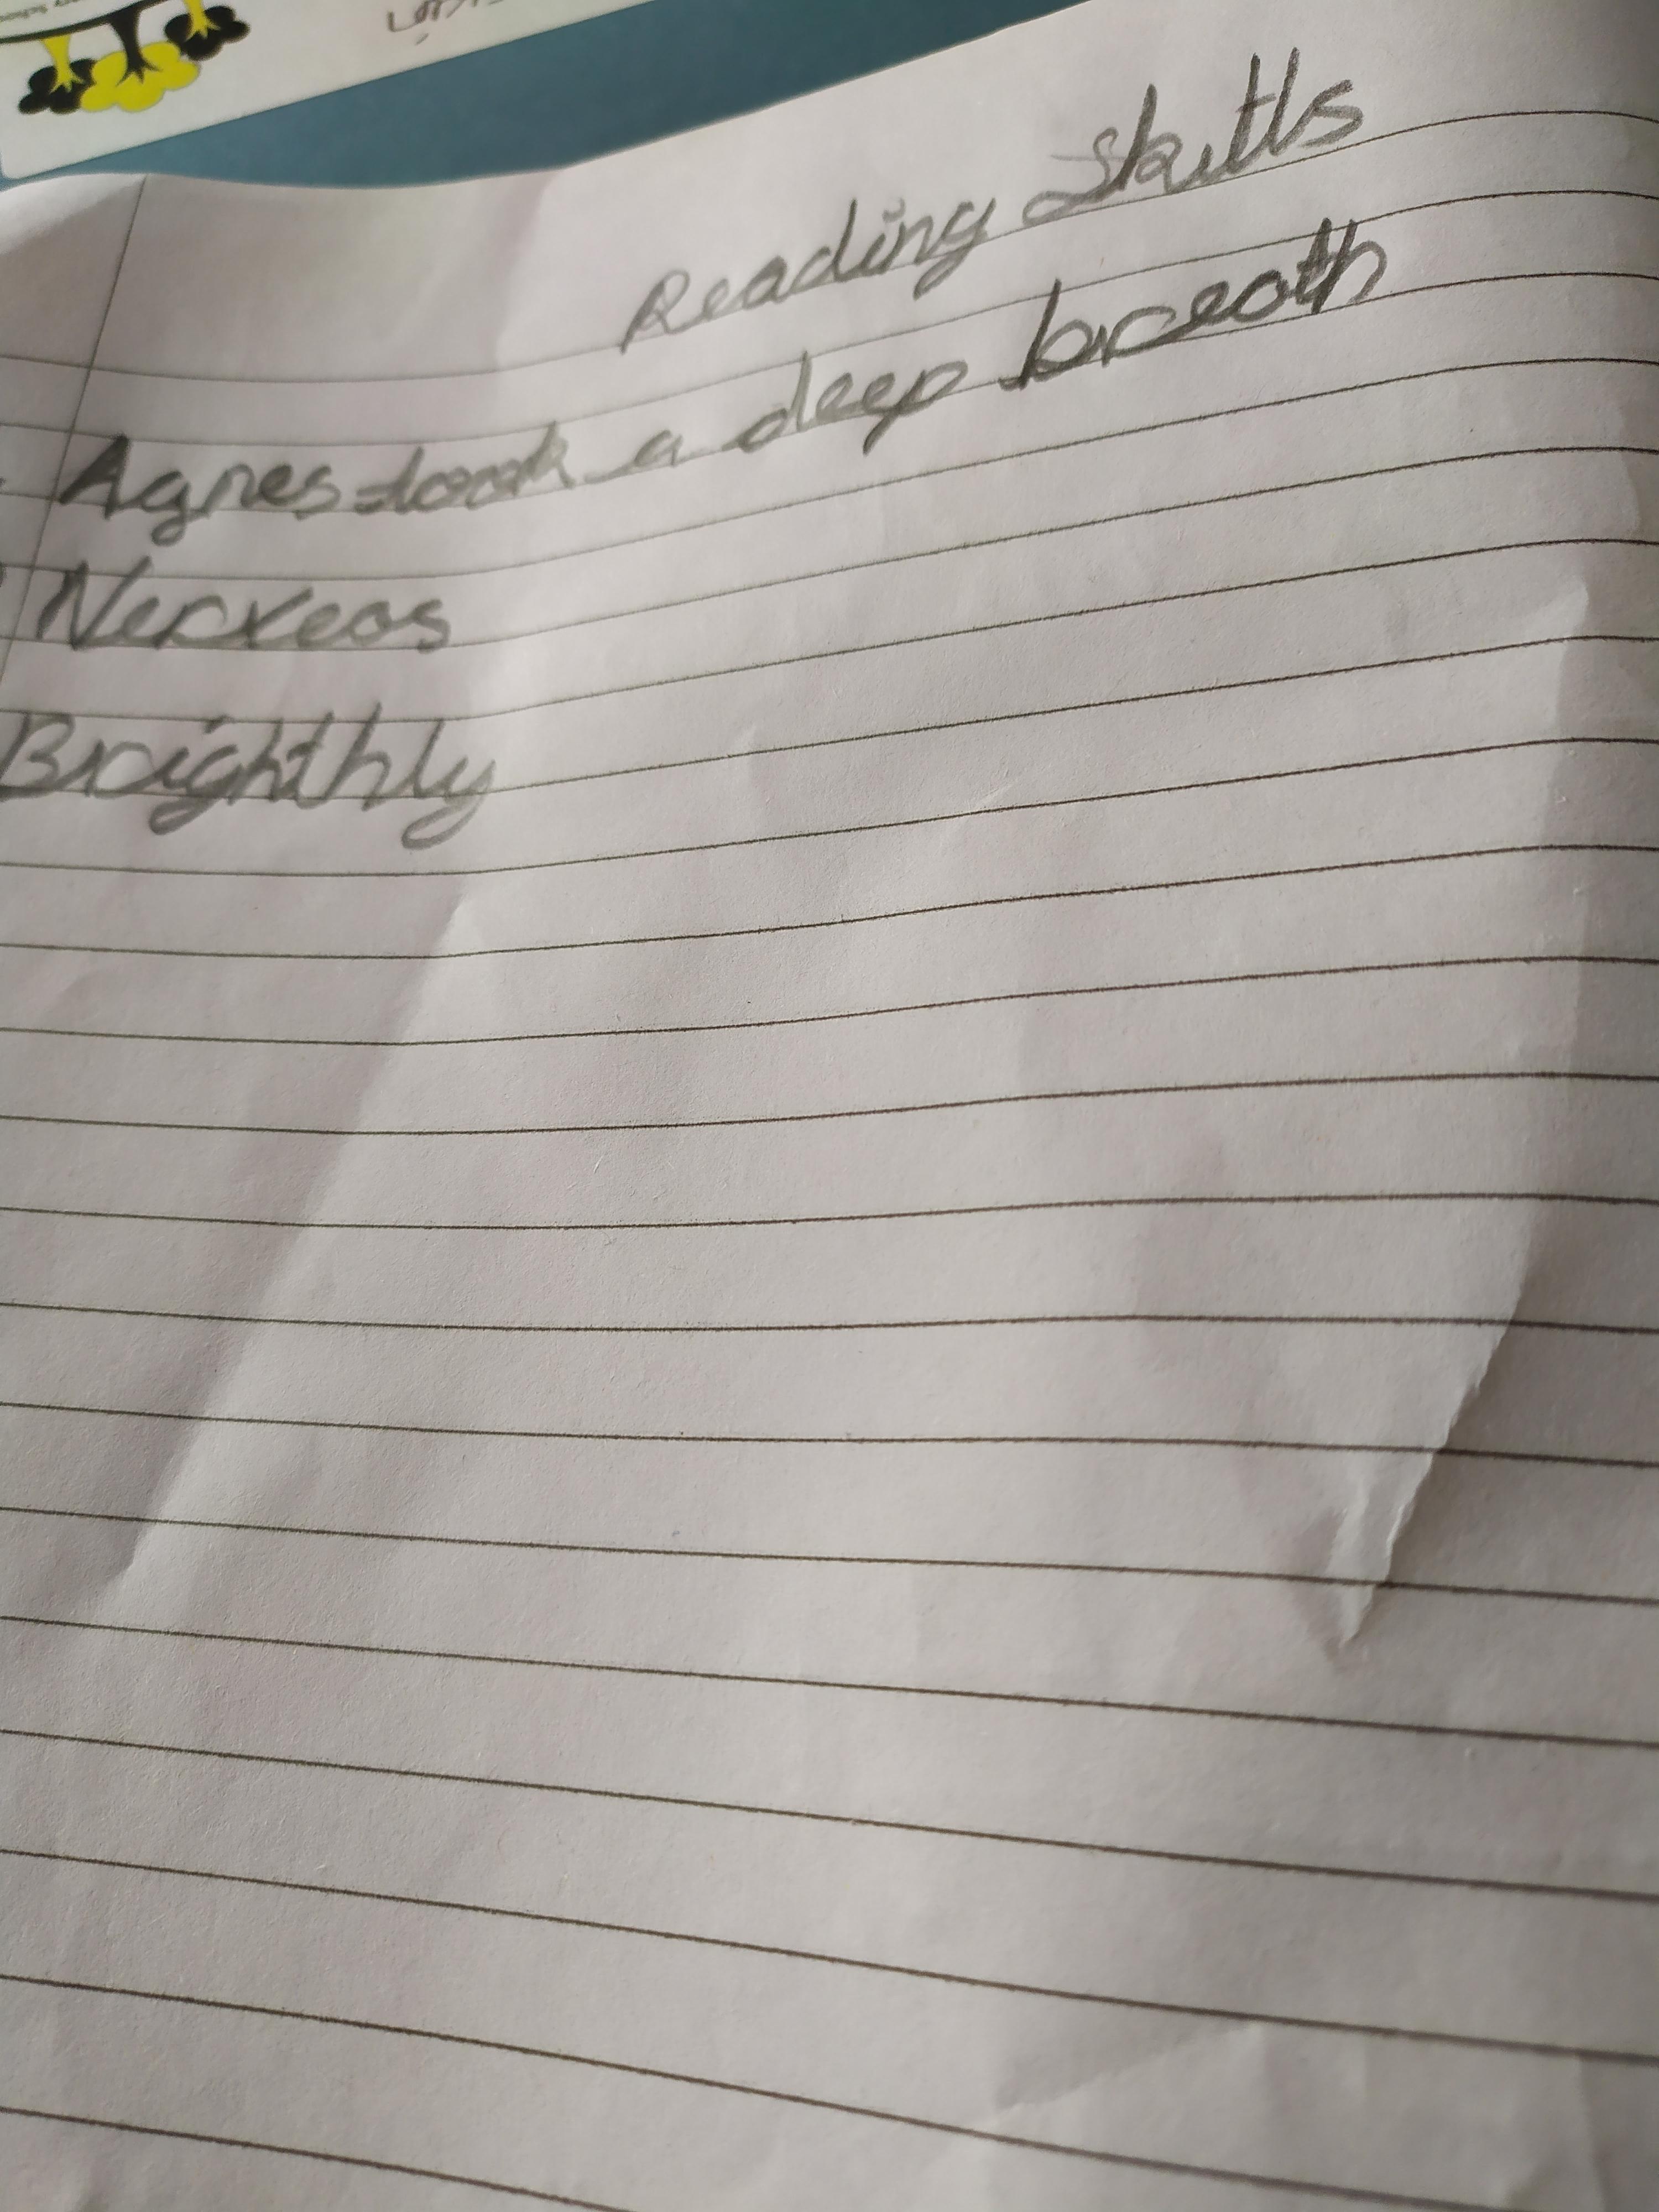 Reading skills
Agnes took a deep breath
Nerveos
Brighthly